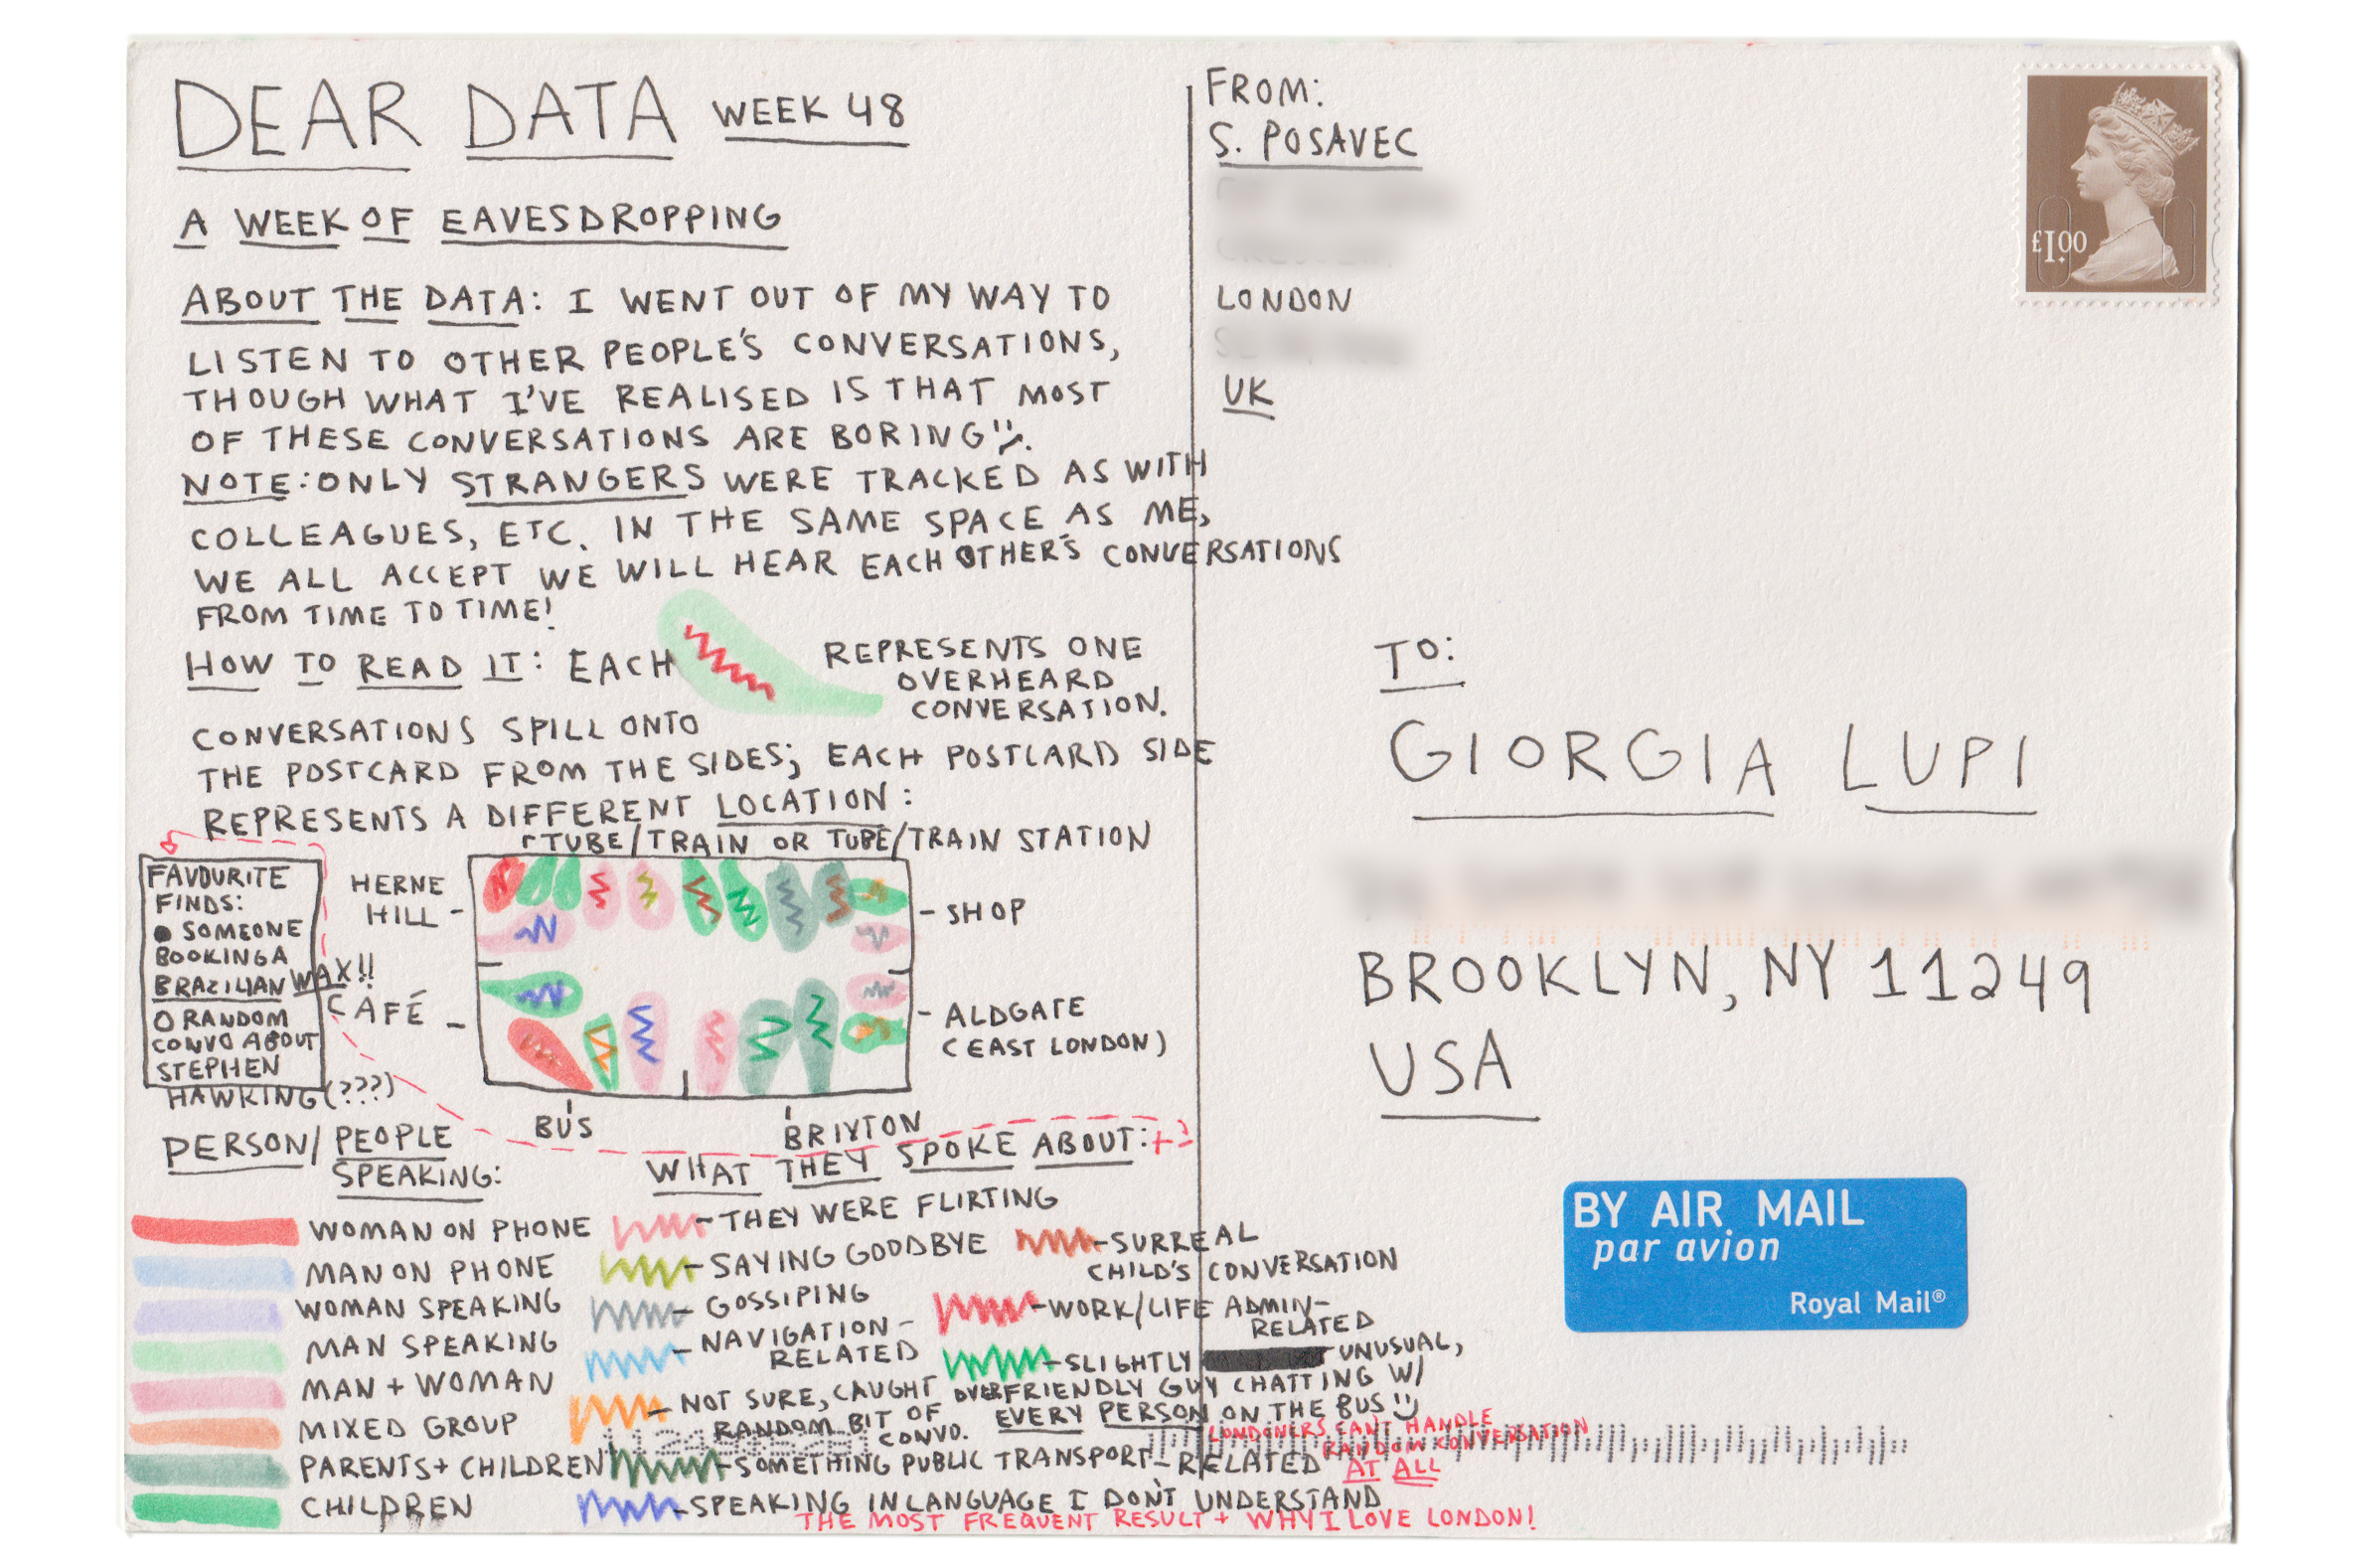 DEAR DATA WEEK 48
A WEEK OF EAVESDROPPING
ABOUT THE DATA: I WENT OUT OF MY WAY TO
LISTEN TO OTHER PEOPLE'S CONVERSATIONS,
THOUGH WHAT I'VE REALISED IS THAT MOST
OF THESE CONVERSATIONS ARE BORING
NOTE: ONLY STRANGERS WERE TRACKED AS WITH
COLLEAGUES, ETC. IN THE SAME SPACE AS ME,
WE ALL ACCEPT WE WILL HEAR EACH OTHER'S CONVERSATIONS
FROM TIME TO TIME!
HOW TO READ IT: EACH
REPRESENTS ONE
OVERHEARD
CONVERSATION.
CONVERSATIONS SPILL ONTO
THE POSTCARD FROM THE SIDES; EACH POSTCARD SIDE
REPRESENTS A DIFFERENT LOCATION:
TUBE/TRAIN OR TUBE/TRAIN STATION
HERNE
HILL
SHOP
CAFÉ
ALDGATE
(EAST LONDON)
BUS
BRIXTON
FAVOURITE
FINDS:
SOMEONE
BOOKING A
BRAZILIAN WAX!!
RANDOM
CONVO ABOUT
STEPHEN
HAWKING (???)
PERSON/PEOPLE
SPEAKING:
WOMAN ON PHONE
MAN ON PHONE
WOMAN SPEAKING
MAN SPEAKING
MAN + WOMAN
MIXED GROUP
PARENTS + CHILDREN
CHILDREN
WHAT THEY SPOKE ABOUT:
THEY WERE FLIRTING
SAYING GOODBYE
GOSSIPING
NAVIGATION-
RELATED
NOT SURE, CAUGHT
RANDOM BIT OF
CONVO.
SURREAL
CHILD'S CONVERSATION
WORK/LIFE ADMIN-
RELATED
SLIGHTLY UNUSUAL,
OVERFRIENDLY GUY CHATTING W/
EVERY PERSON ON THE BUS
LONDONERS CAN'T HANDLE
RANDOM CONVERSATION
AT ALL
SOMETHING PUBLIC TRANSPORT-RELATED
SPEAKING IN LANGUAGE I DON'T UNDERSTAND
THE MOST FREQUENT RESULT + WHY I LOVE LONDON!
FROM:
S. POSAVEC
LONDON
UK
£1.00
TO:
GIORGIA LUPI
BROOKLYN, NY 11249
USA
BY AIR MAIL
par avion
Royal Mail®